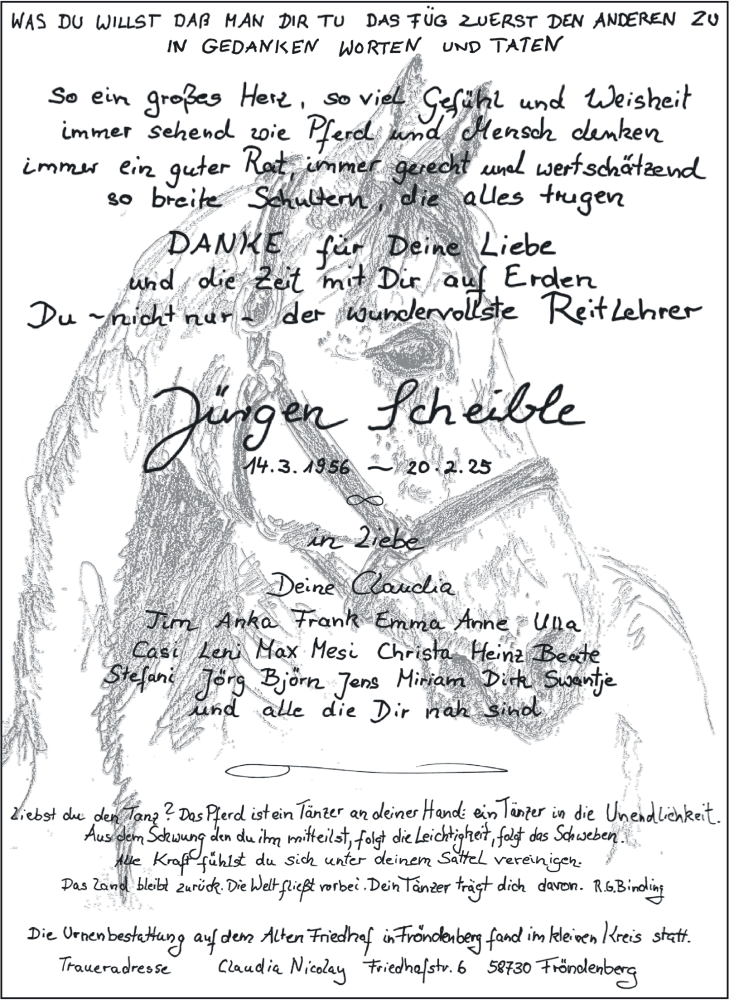 WAS DU WILLST DAß MAN DIR TU DAS FÜG ZUERST DEN ANDEREN ZU
IN GEDANKEN WORTEN UND TATEN
So ein großes Herz, so viel Gefühl und Weisheit
immer sehend wie Pferd und Mensch denken
immer ein guter Rat, immer gerecht und wertschätzend
so breite Schultern, die alles trugen
DANKE für Deine Liebe
und die Zeit mit Dir auf Erden
Du ~ nicht nur ~ der wundervollste ReitLehrer
Jürgen Scheible
14.3.1956 ~ 20.2.25
∞
in Liebe
Deine Claudia
Jim Anka Frank Emma Anne Ulla
Casi Leni Max Mesi Christa Heinz Beate
Stefani Jörg Björn Jens Miriam Dirk Swantje
und alle die Dir nah sind
Liebst du den Tanz? Das Pferd ist ein Tänzer an deiner Hand: ein Tänzer in die Unendlichkeit.
Aus dem Schwung den du ihm mitteilst, folgt die Leichtigkeit, folgt das Schweben.
Alle Kraft fühlst du sich unter deinem Sattel vereinigen.
Das Land bleibt zurück. Die Welt fließt vorbei. Dein Tänzer trägt dich davon. R.G.Binding
Die Urnenbestattung auf dem Alten Friedhof in Fröndenberg fand im kleinen Kreis statt.
Traueradresse Claudia Nicolay Friedhofstr. 6 58730 Fröndenberg